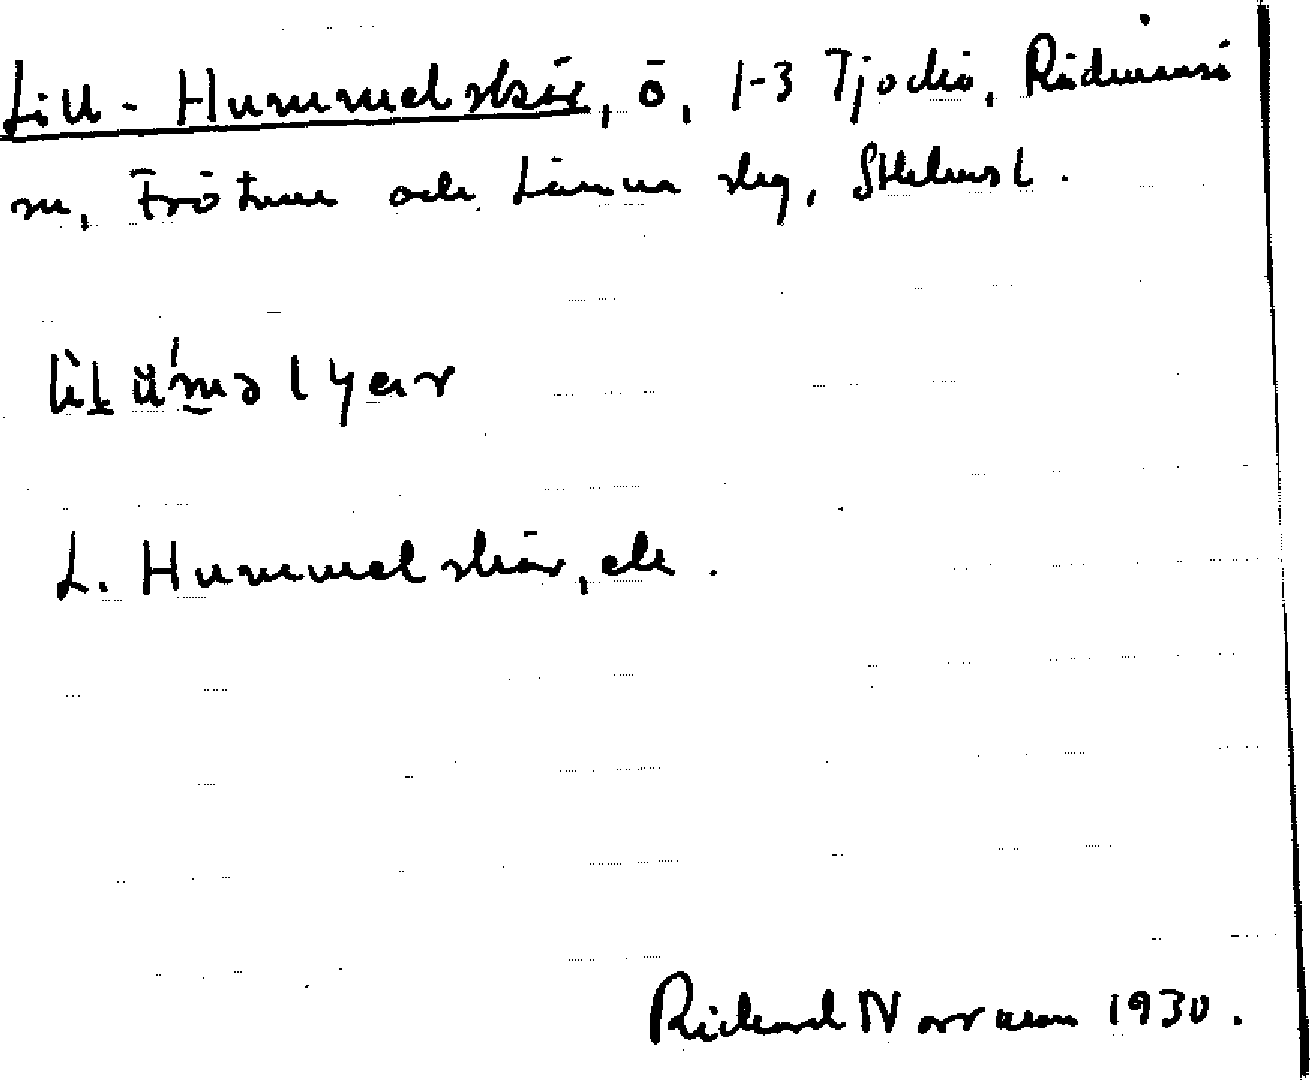 Lill-Hummelskär, ö, 1-3 Tjockö, Rådmansö
sn, Frötuna och Länna slg, Sthlms l.
L. Hummelskär, ek.
Rickard Norrman 1930.